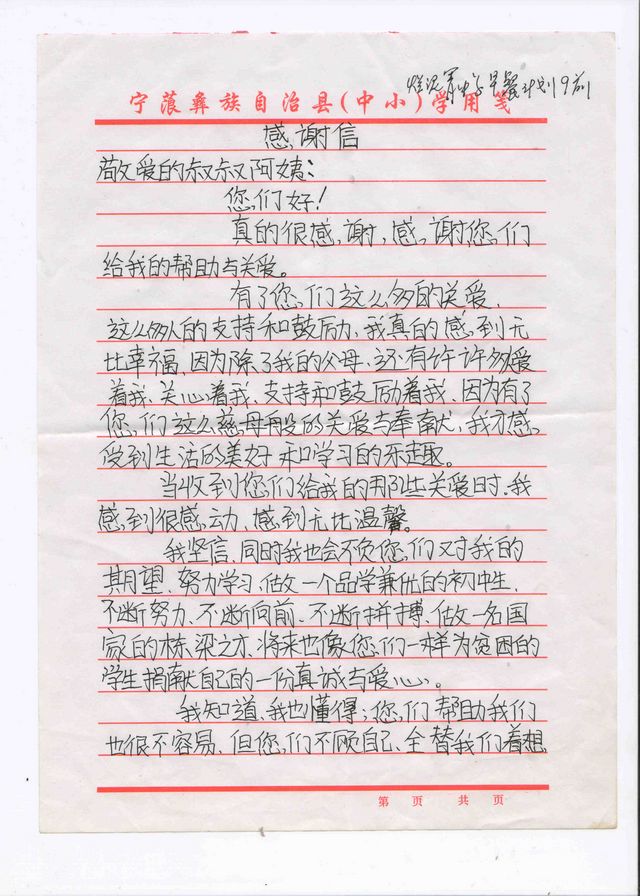 烂泥箐中学早餐计划9前
宁蒗彝族自治县(中小)学用笺
感谢信
敬爱的叔叔阿姨:
您们好!
真的很感谢,感谢您们
给我的帮助与关爱。
有了您们这么多的关爱、
这么多人的支持和鼓励,我真的感到无
比幸福,因为除了我的父母,还有许许多多爱
着我、关心着我、支持和鼓励着我,因为有了
您们这么慈母般的关爱与奉献,我才感
受到生活的美好和学习的乐趣。
当收到您们给我的那些关爱时,我
感到很感动、感到无比温馨。
我坚信,同时我也会不负您们对我的
期望,努力学习,做一个品学兼优的初中生,
不断努力、不断向前、不断拼搏,做一名国
家的栋梁之才,将来也像您们一样为贫困的
学生捐献自己的一份真诚与爱心。
我知道、我也懂得:您们帮助我们
也很不容易,但您们不顾自己、全替我们着想
第 页 共 页